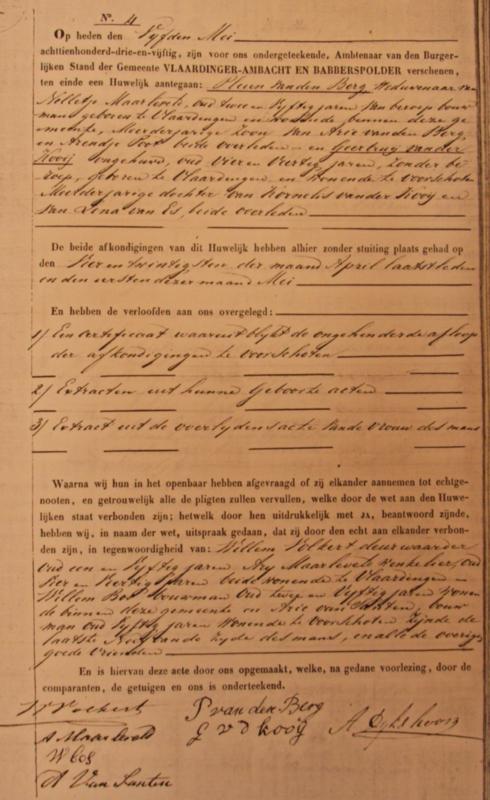 N.º 4
Op heden den Vyfden Mei
achttienhonderd-drie-en-vijftig, zijn voor ons ondergeteekende, Ambtenaar van den Burger-
lijken Stand der Gemeente VLAARDINGER-AMBACHT EN BABBERSPOLDER verschenen,
ten einde een Huwelijk aantegaan: Pleun van den Berg Weduwenaar van
Nelletje Maarleveld, oud twee en Vyftig jaren van beroep bouw
man geboren te Vlaardingen en wonende binnen deze ge
meente, Meerderjarige Zoon van Arie van den Berg,
en Arendje Poot beide overleden en Geertrug van der
Kooij ongehuwd, oud Vier en Veertig jaren, zonder be
roep, geboren te Vlaardingen en wonende te Voorschoten
Meerderjarige dochter van Kornelis van der Kooij en
van Lena van Es, beide overleden
De beide afkondigingen van dit Huwelijk hebben alhier zonder stuiting plaats gehad op
den Vier en twintigsten der maand April laatstleden
en den eersten dezer maand Mei
En hebben de verloofden aan ons overgelegd:
1) Een certificaat waaruit blykt de ongehinderde afloop
der afkondigingen te Voorschoten
2) Extracten uit hunne Geboorte acten
3) Extract uit de overlydens acte van de vrouw des mans
Waarna wij hun in het openbaar hebben afgevraagd of zij elkander aannemen tot echtge-
nooten, en getrouwelijk alle de pligten zullen vervullen, welke door de wet aan den Huwe-
lijken staat verbonden zijn; hetwelk door hen uitdrukkelijk met JA, beantwoord zijnde,
hebben wij, in naam der wet, uitspraak gedaan, dat zij door den echt aan elkander verbon-
den zijn, in tegenwoordigheid van: Willem Volkert deurwaarder
oud een en Vyftig jaren, Ary Maarleveld Winkelier, oud
Vier en Veertig jaren beide wonende te Vlaardingen en
Willem Bos bouwman oud twee en Vyftig jaren wonen
de binnen deze gemeente en Arie van Santen, bouw
man oud Vyftig jaren wonende te Voorschoten zijnde de
laatste Neef van de zyde des mans, en alle de overige
goede vrienden
En is hiervan deze acte door ons opgemaakt, welke, na gedane voorlezing, door de
comparanten, de getuigen en ons is onderteekend.
W Volkert P van den Berg
A Maarleveld G v d kooij A Dykshoorn
W bos
A Van Santen